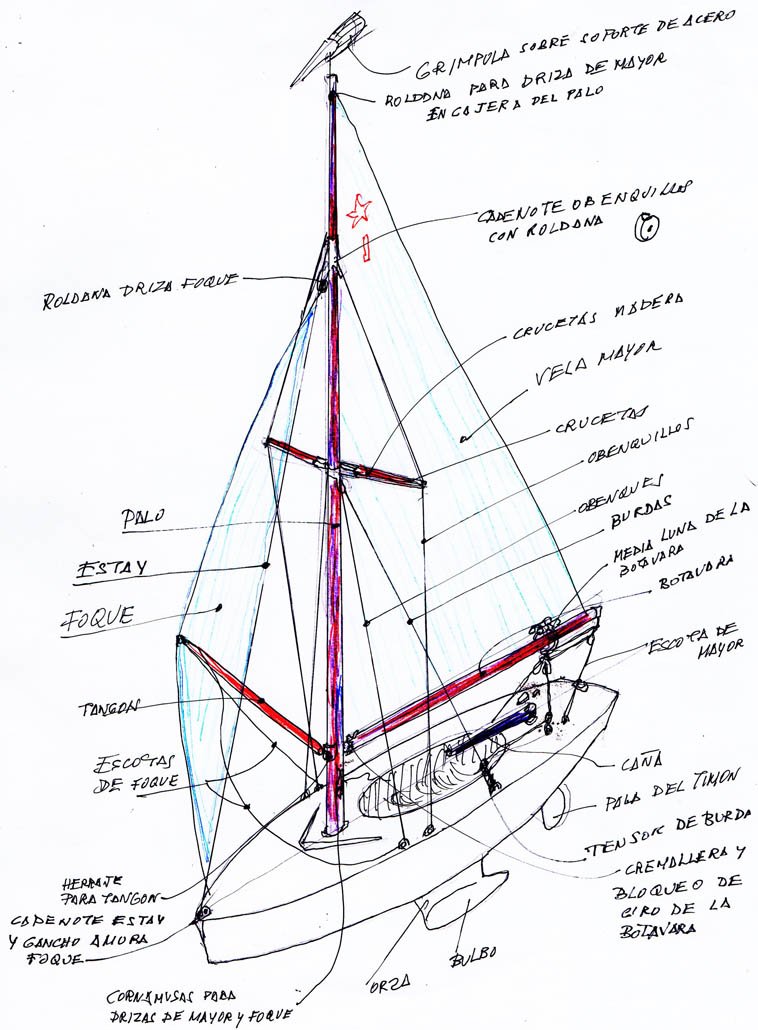 GRIMPULA SOBRE SOPORTE DE ACERO
ROLDANA PARA DRIZA DE MAYOR
EN CAJERA DEL PALO
CADENOTE OBENQUILLOS
CON ROLDANA
ROLDANA DRIZA FOQUE
CRUCETAS MADERA
VELA MAYOR
CRUCETAS
OBENQUILLOS
OBENQUES
BURDAS
MEDIA LUNA DE LA
BOTAVARA
BOTAVARA
ESCOTA DE
MAYOR
PALO
ESTAY
FOQUE
TANGON
ESCOTAS
DE FOQUE
CAÑA
PALA DEL TIMON
TENSOR DE BURDA
CREMALLERA Y
BLOQUEO DE
GIRO DE LA
BOTAVARA
HERRAJE
PARA TANGON
CADENOTE ESTAY
Y GANCHO AMURA
FOQUE
CORNAMUSAS PARA
DRIZAS DE MAYOR Y FOQUE
ORZA
BULBO